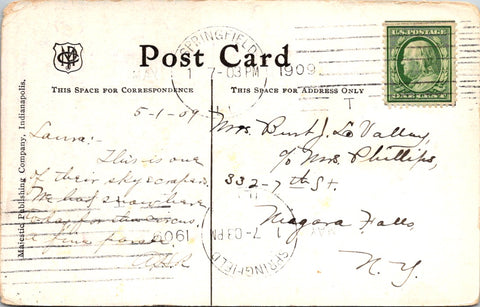 Post Card
SPRINGFIELD
MAY 1 7-03 PM 1909
T
U.S. POSTAGE
THIS SPACE FOR CORRESPONDENCE
THIS SPACE FOR ADDRESS ONLY
Majestic Publishing Company, Indianapolis.
5-1-09
Laura:-
This is one
of their skyscrapers.
We had snow here
today for the circus.
a fine parade.
Mrs. Burt J. La Valley,
c/o Mrs. Phillips,
332-7th St.
Niagara Falls
N. Y.
SPRINGFIELD
MAY 1 7-03 PM 1909